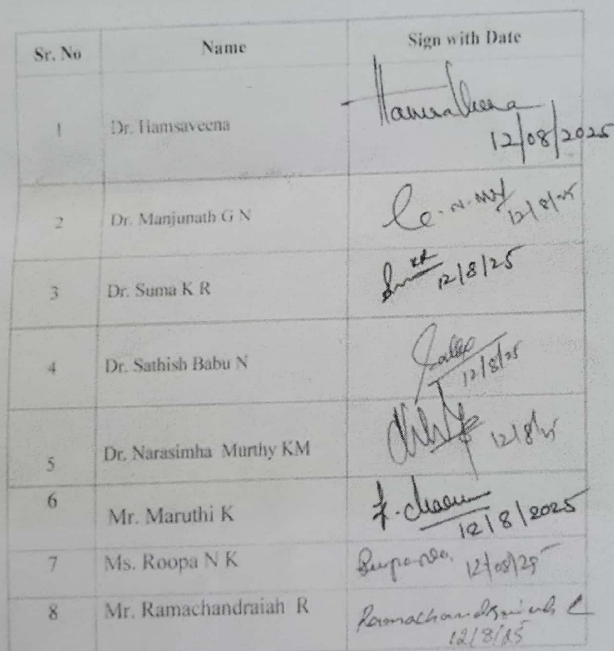 Sr. No Name Sign with Date
1 Dr. Hamsaveena
12/08/2025
2 Dr. Manjunath G N 12/8/25
3 Dr. Suma K R 12/8/25
4 Dr. Sathish Babu N
12/8/25
5 Dr. Narasimha Murthy KM 12/8/25
6 Mr. Maruthi K
12/8/2025
7 Ms. Roopa N K 12/08/25
8 Mr. Ramachandraiah R Ramachandraiah R
12/8/25